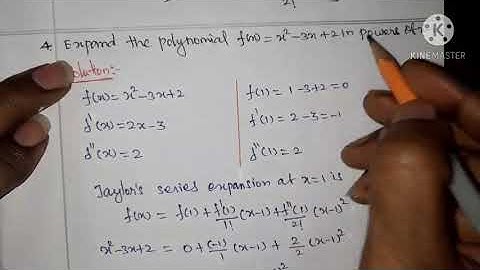 4. Expand the polynomial f(x) = x² - 3x + 2 in powers of
KINEMASTER
Solution:-
f(x) = x² - 3x + 2
f'(x) = 2x - 3
f''(x) = 2
f(1) = 1 - 3 + 2 = 0
f'(1) = 2 - 3 = -1
f''(1) = 2
Taylor's series expansion at x = 1 is
f(x) = f(1) + f'(1)/1! (x-1) + f''(1)/2! (x-1)²
x² - 3x + 2 = 0 + (-1)/1 (x-1) + 2/2 (x-1)²